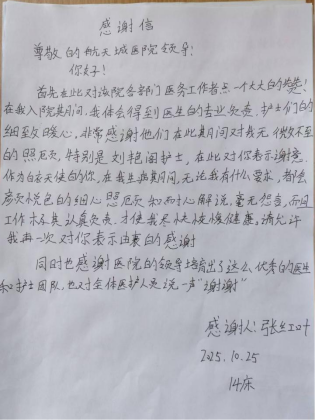 感谢信
尊敬的航天城医院领导！
你好！
首先在此对该院各部门医务工作者点一个大大的赞！
在我入院其月间，我体会得到医生的专业负责，护士们的
细致暖心，非常感谢他们在此其月间对我无微不至
的照顾，特别是刘艳阁护士，在此对你表示谢意，
作为白衣天使的你，在我生病其月间，无论我有什么要求，都会
颜悦色的细心照顾和耐心解说，毫无怨言，而且
工作极其认真负责，才使我尽快恢复健康，请允许
我再一次对你表示由衷的感谢
同时也感谢医院的领导培育出了这么优秀的医生
和护士团队，也对全体医护人员说一声"谢谢"
感谢人：张红叶
2025.10.25
14床